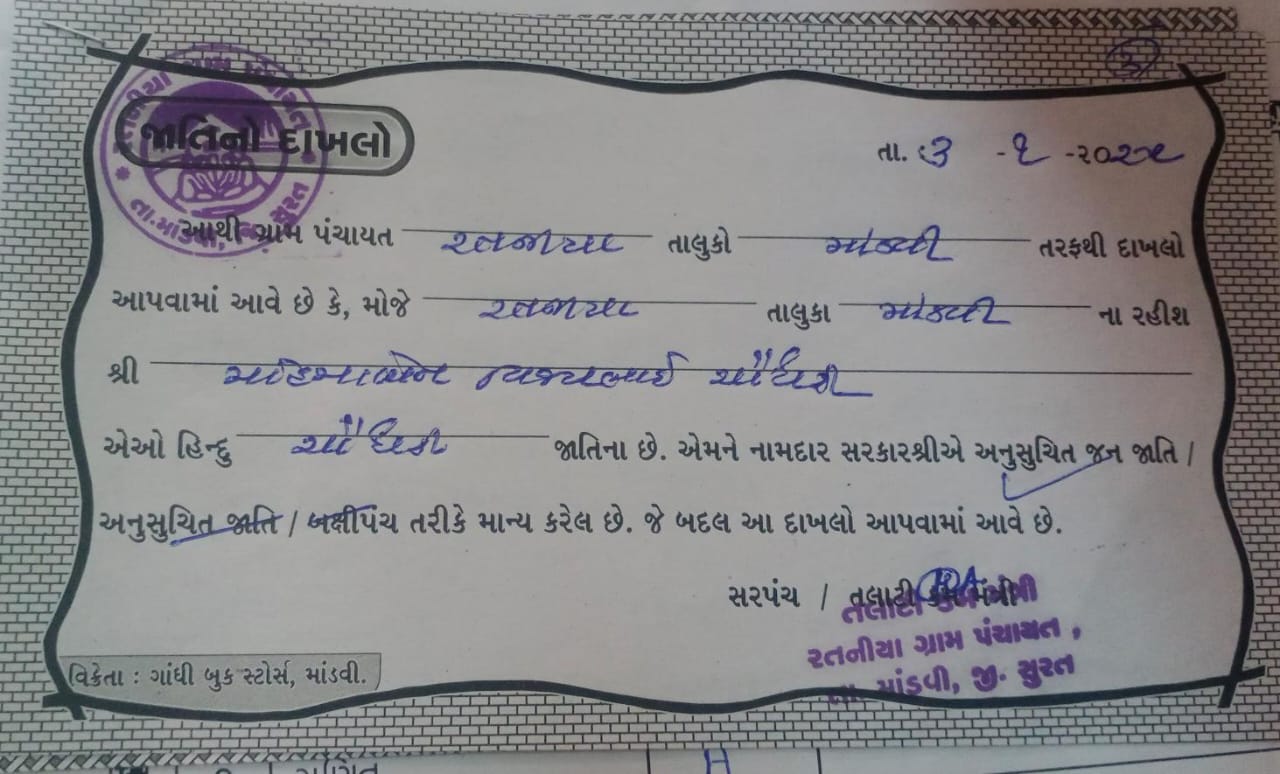 જાતિનો દાખલો
તા. ૩ - ૧ - ૨૦૨૫
આથી ગ્રામ પંચાયત રતનીયા તાલુકો માંડવી તરફથી દાખલો
આપવામાં આવે છે કે, મોજે રતનીયા તાલુકા માંડવી ના રહીશ
શ્રી મહિમાબેન ચૌધરી
એઓ હિન્દુ ચૌધરી જાતિના છે. એમને નામદાર સરકારશ્રીએ અનુસુચિત જન જાતિ /
અનુસુચિત જાતિ / બક્ષીપંચ તરીકે માન્ય કરેલ છે. જે બદલ આ દાખલો આપવામાં આવે છે.
સરપંચ / તલાટી કમ મંત્રી
તલાટી કમ મંત્રી
રતનીયા ગ્રામ પંચાયત,
તા. માંડવી, જી. સુરત
વિક્રેતા : ગાંધી બુક સ્ટોર્સ, માંડવી.